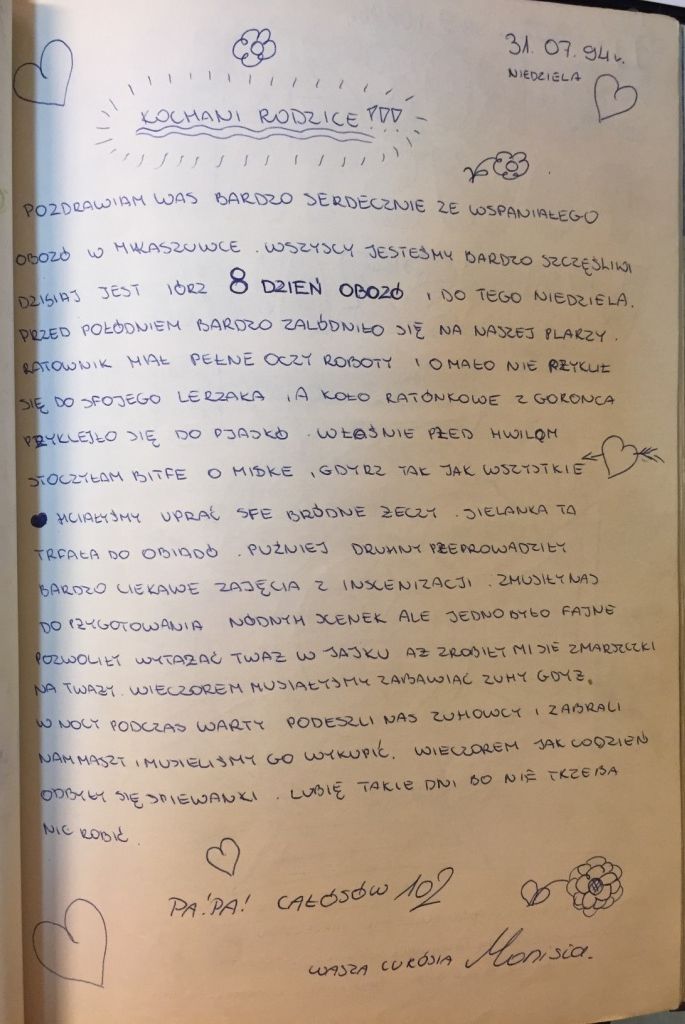 31.07.94r.
NIEDZIELA
KOCHANI RODZICE!!!
POZDRAWIAM WAS BARDZO SERDECZNIE ZE WSPANIAŁEGO
OBOZÓ W MIKASZUWCE. WSZYSCY JESTEŚMY BARDZO SZCZĘŚLIWI
DZISIAJ JEST IÓRZ 8 DZIEŃ OBOZÓ I DO TEGO NIEDZIELA.
PRZED POŁÓDNIEM BARDZO ZALÓDNIŁO SIĘ NA NASZEJ PLARZY.
RATOWNIK MIAŁ PEŁNE OCZY ROBOTY I O MAŁO NIE PZYKUŁ
SIĘ DO SFOJEGO LERZAKA, A KOŁO RATÓNKOWE Z GORONCA
PRZYKLEJŁO SIĘ DO PJASKÓ. WŁAŚNIE PŻED HWILOM
STOCZYŁAM BITFE O MISKE, GDYRZ TAK JAK WSZYSTKIE
HCIAŁYŚMY UPRAĆ SFE BRÓDNE ŻECZY. SIELANKA TA
TRFAŁA DO OBIADÓ. PUŹNIEJ DRUHNY PŻEPROWADZIŁY
BARDZO CIEKAWE ZAJĘCIA Z INSCENIZACJI. ZMUSIŁY NAS
DO PZYGOTOWANIA NÓDNYH SCENEK ALE JEDNO BYŁO FAJNE
POZWOLIŁY WYTAZAĆ TWAZ W JAJKU AŻ ZROBIŁY MI SIE ZMARSZCZKI
NA TWAZY. WIECZOREM MUSIAŁYŚMY ZABAWIAĆ ZUHY GDYZ,
W NOCY PODCZAS WARTY PODESZLI NAS ZUHOWCY I ZABRALI
NAM MASZT I MUSIELIŚMY GO WYKUPIĆ. WIECZOREM JAK CODZIEŃ
ODBYŁY SIĘ SPIEWANKI. LUBIĘ TAKIE DNI BO NIE TRZEBA
NIC ROBIĆ.
PA! PA! CAŁÓSÓW 102
WASZA CURÓSIA Monisia.